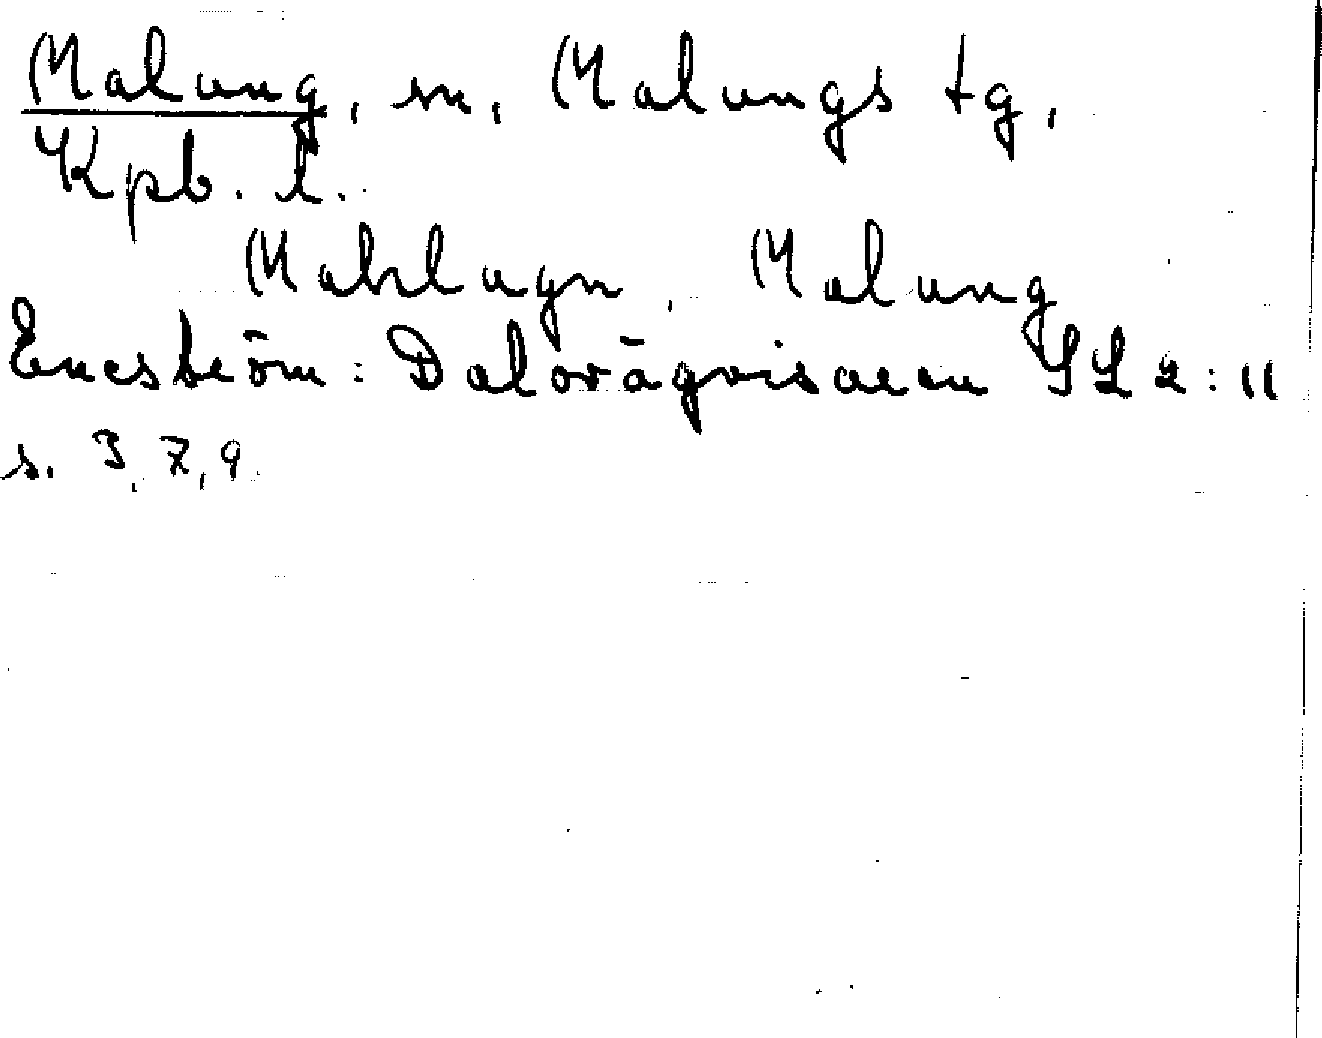 Malung, sn, Malungs tg,
Kpb. l.
Mahlugn, Malung
Eneström: Dalovägvisaren SLL 2:11
s. 3, 7, 9